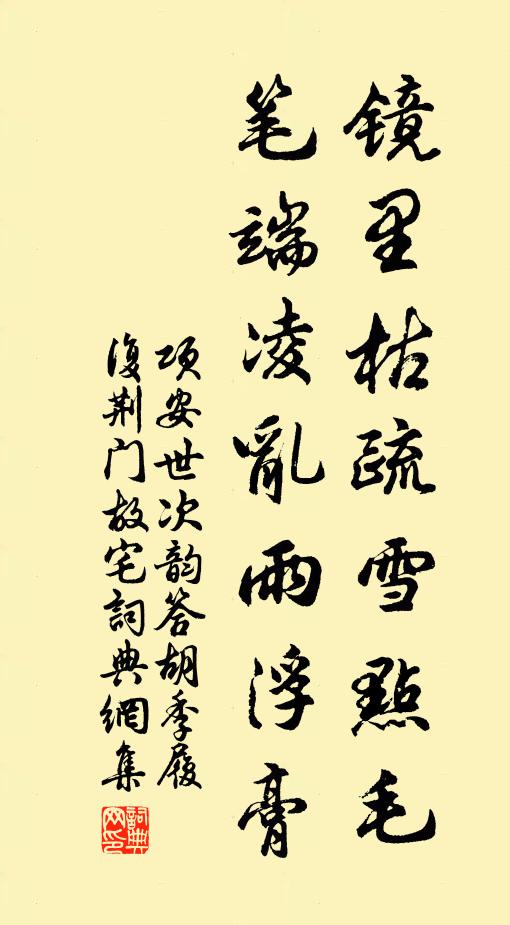 镜里枯疏雪點毛
笔端凌亂雨浮膏
项安世次韵答胡季履
復荆门故宅詞典網集
詞典网印